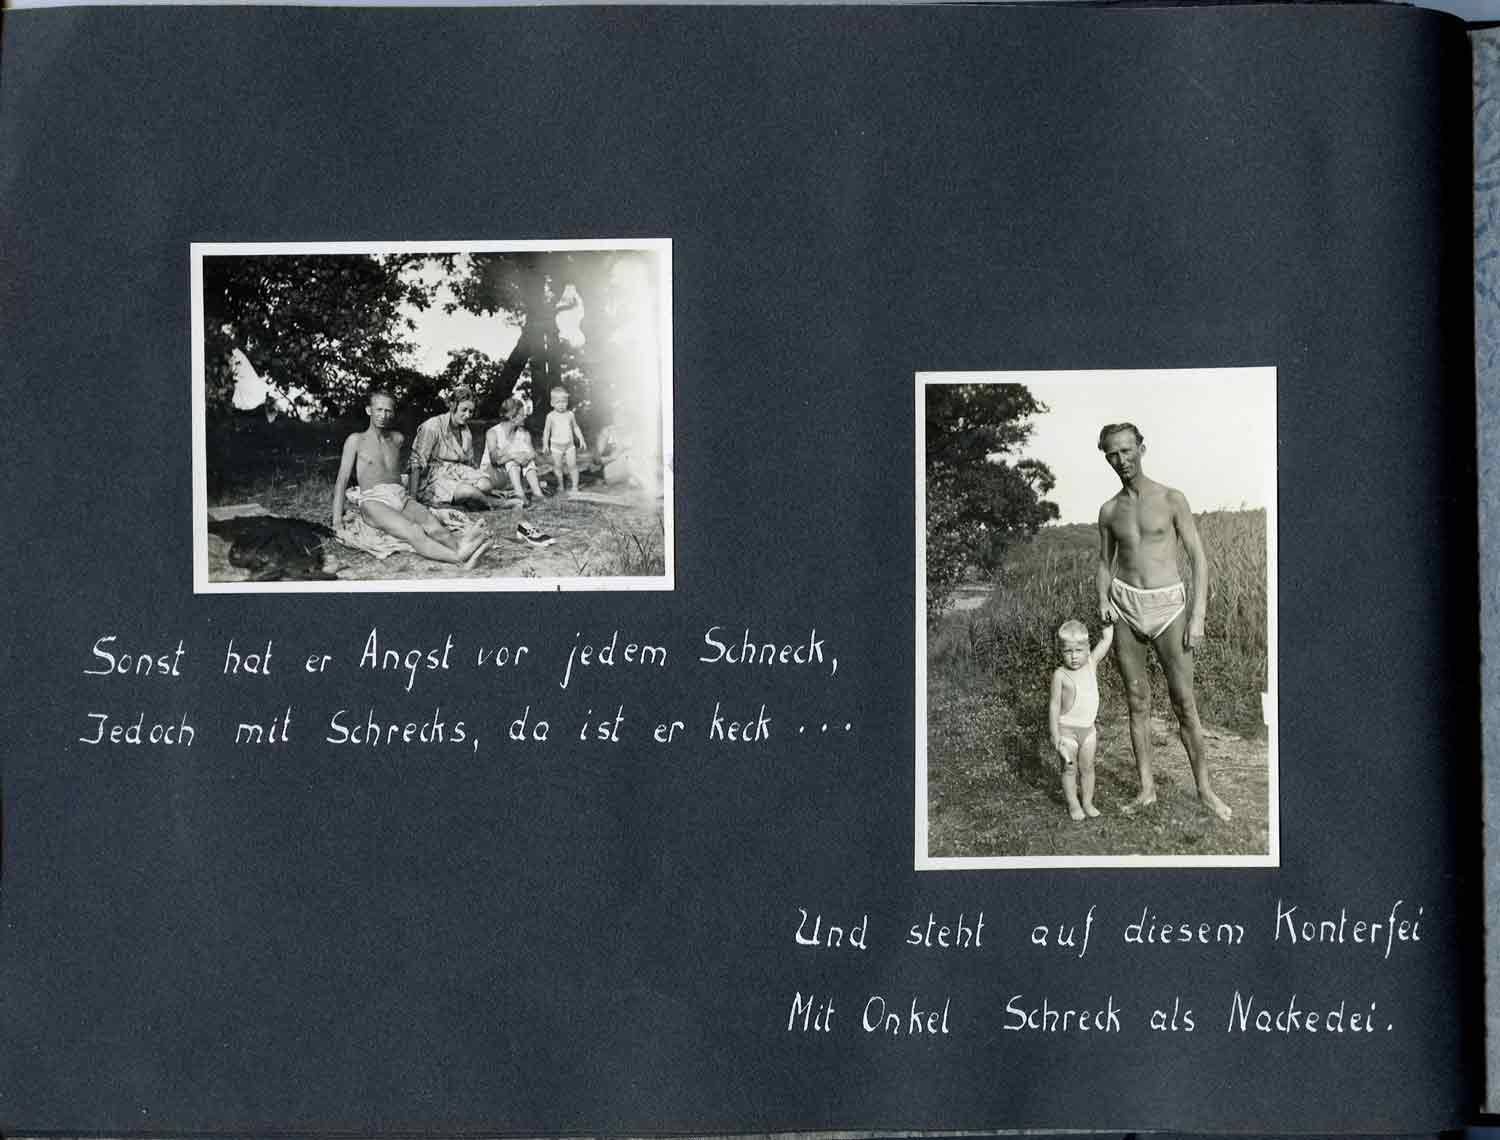 Sonst hat er Angst vor jedem Schneck,
Jedoch mit Schrecks, da ist er keck ...
Und steht auf diesem Konterfei
Mit Onkel Schreck als Nackedei.